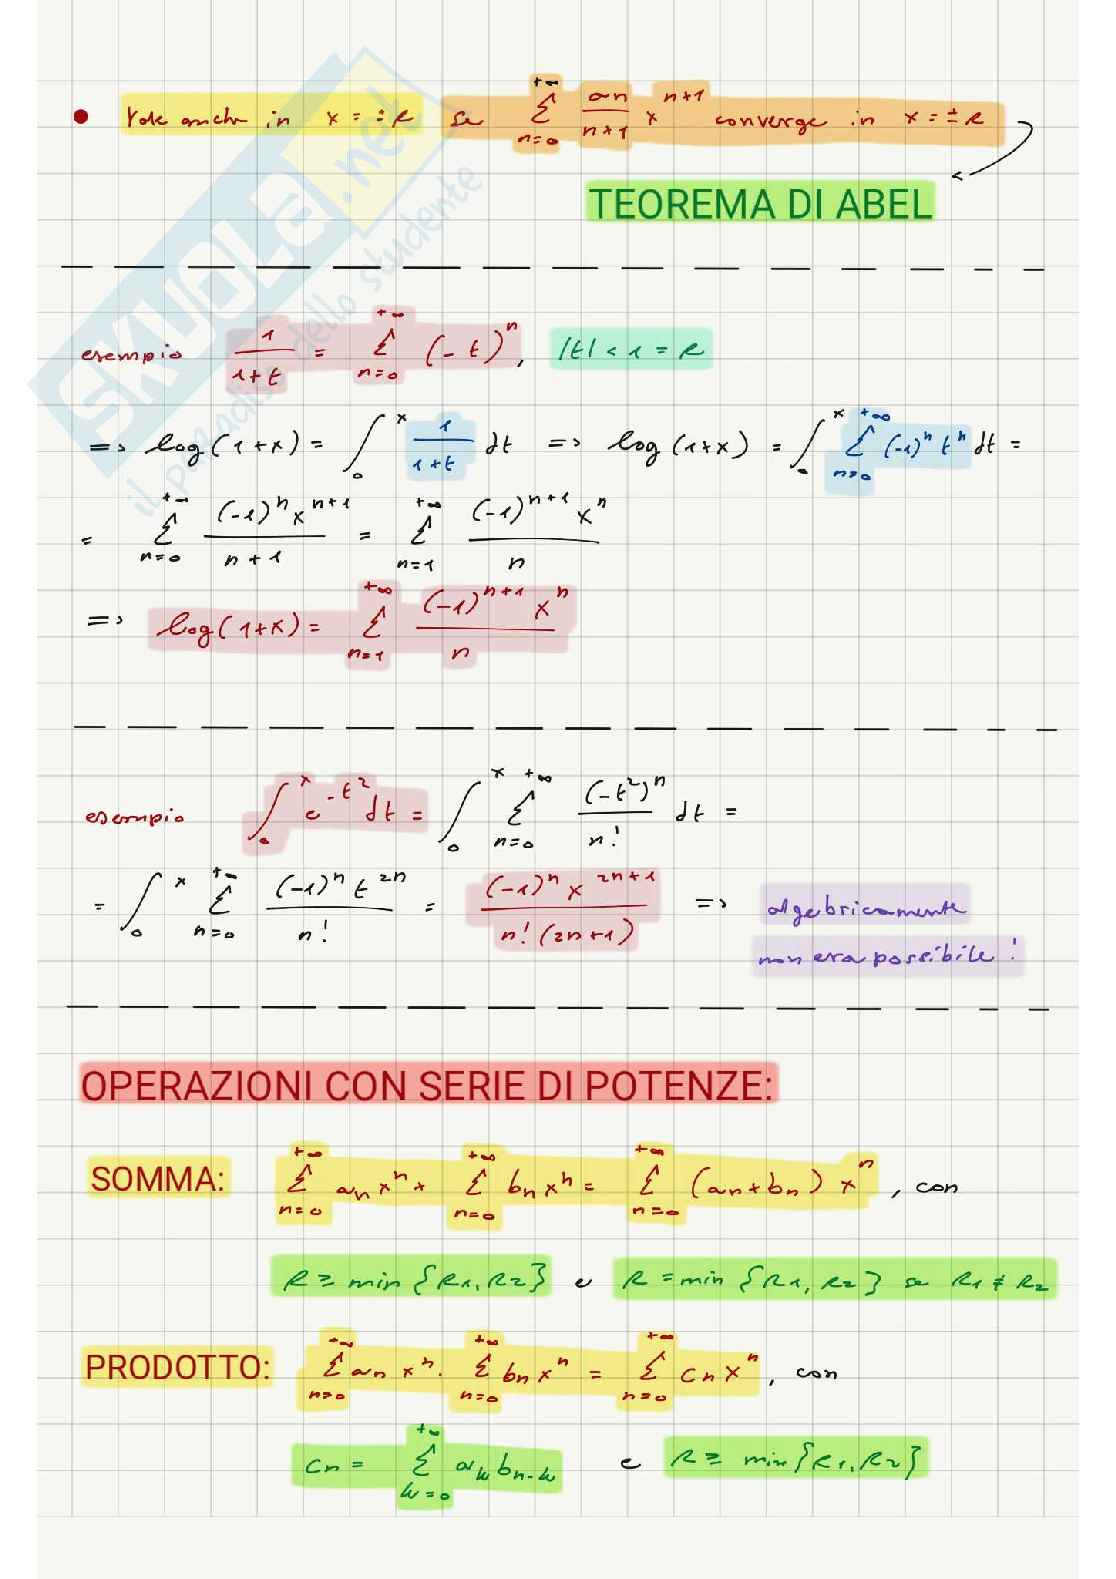 • Vale anche in x = ± R se \sum_{n=0}^{+∞} \frac{a_n}{n+1} x^{n+1} converge in x = ± R
TEOREMA DI ABEL
SKUOLA.net
il paradiso dello studente
esempio \frac{1}{1+t} = \sum_{n=0}^{+∞} (-t)^n, |t| < 1 = R
=> log(1+x) = \int_0^x \frac{1}{1+t} dt => log(1+x) = \int_0^x \sum_{n=0}^{+∞} (-1)^n t^n dt =
= \sum_{n=0}^{+∞} \frac{(-1)^n x^{n+1}}{n+1} = \sum_{n=1}^{+∞} \frac{(-1)^{n+1} x^n}{n}
=> log(1+x) = \sum_{n=1}^{+∞} \frac{(-1)^{n+1} x^n}{n}
esempio \int_0^x e^{-t^2} dt = \int_0^x \sum_{n=0}^{+∞} \frac{(-t^2)^n}{n!} dt =
= \int_0^x \sum_{n=0}^{+∞} \frac{(-1)^n t^{2n}}{n!} = \frac{(-1)^n x^{2n+1}}{n! (2n+1)} => algebricamente
non era possibile!
OPERAZIONI CON SERIE DI POTENZE:
SOMMA: \sum_{n=0}^{+∞} a_n x^n + \sum_{n=0}^{+∞} b_n x^n = \sum_{n=0}^{+∞} (a_n + b_n) x^n, con
R ≥ min {R1, R2} e R = min {R1, R2} se R1 ≠ R2
PRODOTTO: \sum_{n=0}^{+∞} a_n x^n · \sum_{n=0}^{+∞} b_n x^n = \sum_{n=0}^{+∞} c_n x^n, con
c_n = \sum_{k=0}^{+∞} a_k b_{n-k} e R ≥ min {R1, R2}